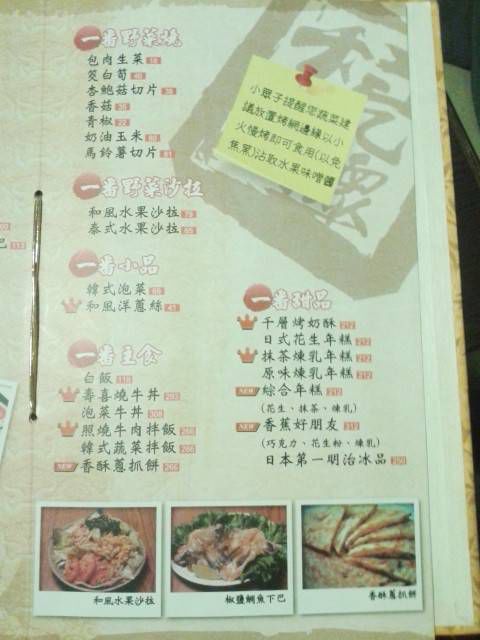 一番野菜燒
包肉生菜
筊白筍
杏鮑菇切片
香菇
青椒 22
奶油玉米
馬鈴薯切片
小眾子提醒您蔬菜建
議放置烤網邊緣以小
火慢烤即可食用(以免
焦黑)沾取水果味噌醬
一番野菜沙拉
和風水果沙拉
泰式水果沙拉
一番小品
韓式泡菜
和風洋蔥絲
一番主食
白飯
壽喜燒牛丼
泡菜牛丼
照燒牛肉拌飯 266
韓式蔬菜拌飯 266
NEW 香酥蔥抓餅 266
一番甜品
千層烤奶酥 212
日式花生年糕 212
抹茶煉乳年糕 212
原味煉乳年糕 212
NEW 綜合年糕 212
(花生、抹茶、煉乳)
NEW 香蕉好朋友 312
(巧克力、花生粉、煉乳)
日本第一明治冰品
和風水果沙拉
椒鹽鯛魚下巴
香酥蔥抓餅